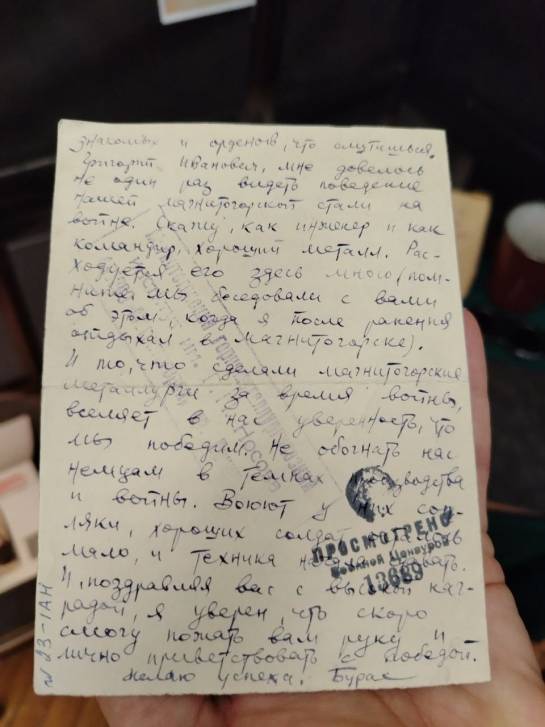 знакомых и орденов, что смутишься.
Григорий Иванович, мне довелось
не один раз видеть поведение
нашей магнитогорской стали на
войне. Скажу, как инженер и как
командир, хороший металл. Рас-
ходуется его здесь много (пом-
ните, мы беседовали с вами
об этом, когда я после ранения
отдыхал в Магнитогорске).
И то, что сделали магнитогорские
металлурги за время войны,
вселяет в нас уверенность, что
мы победим. Не обогнать нас
немцам в темпах производства
и войны. Воюют у них соп-
ляки, хороших солдат
мало, и техника
И, поздравляя вас с высокой наг-
радой, я уверен, что скоро
смогу пожать вам руку и
лично приветствовать с победой.
Желаю успеха. Бурас
ПРОСМОТРЕНО
Военной Цензурой
13699